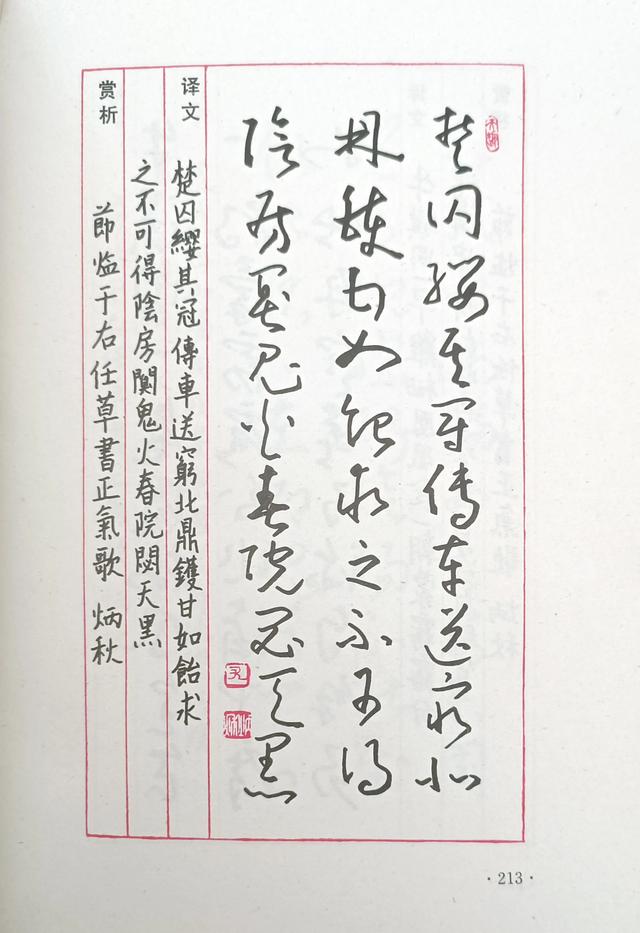 楚囚纓其冠傳車送窮北
鼎鑊甘如飴求之不可得
陰房闃鬼火春院閟天黑
译文
楚囚纓其冠傳車送窮北鼎鑊甘如飴求
之不可得陰房闃鬼火春院閟天黑
赏析
節臨于右任草書正氣歌 炳秋
·213·